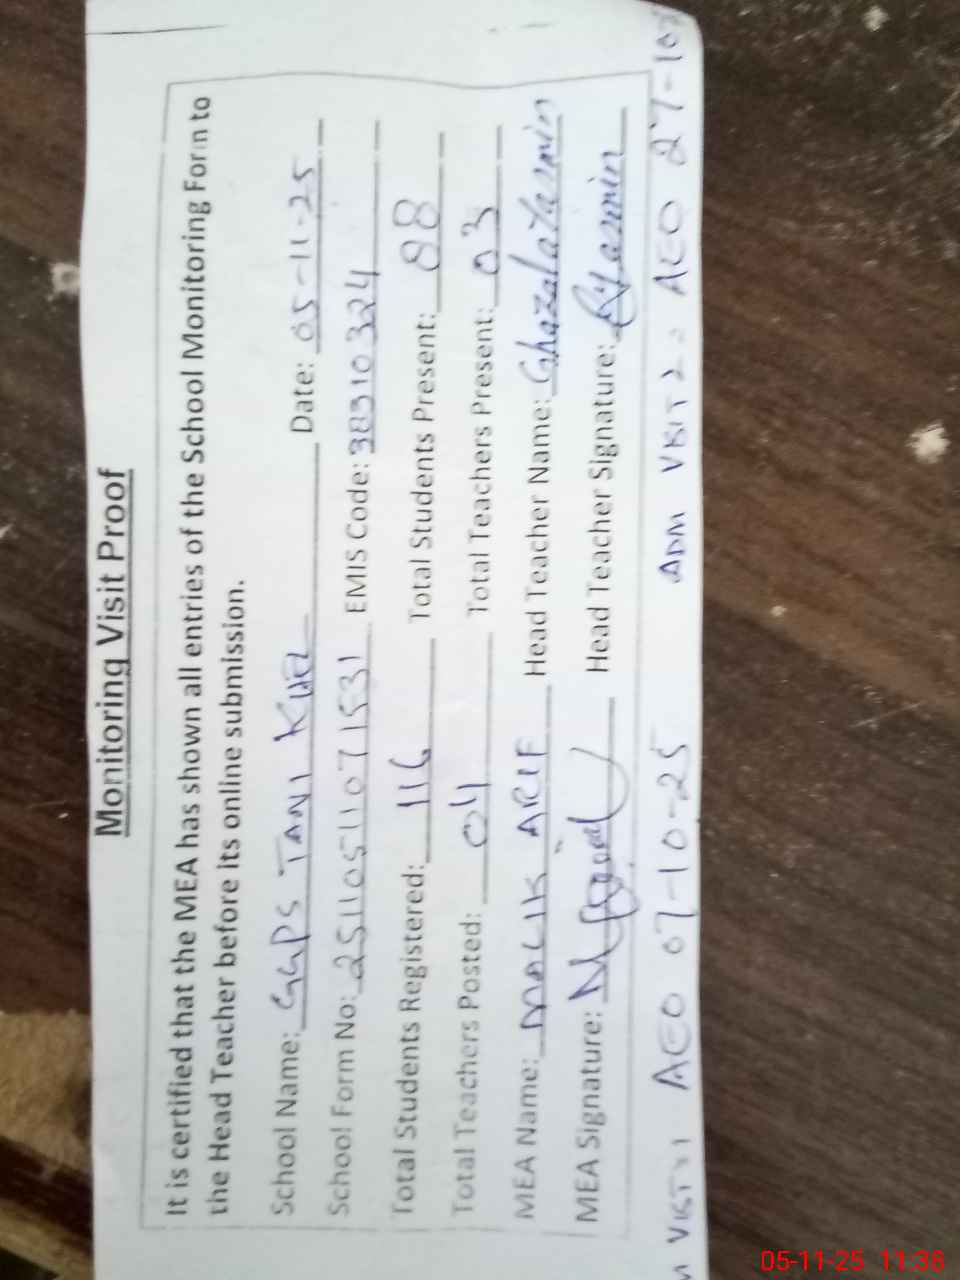 Monitoring Visit Proof
It is certified that the MEA has shown all entries of the School Monitoring Form to
the Head Teacher before its online submission.
School Name: GGPS TANI KHEL Date: 05-11-25
School Form No: 25110511071531 EMIS Code: 38310324
Total Students Registered: 116 Total Students Present: 88
Total Teachers Posted: 04 Total Teachers Present: 03
MEA Name: MALIK ARIF Head Teacher Name: Ghazala Yasmin
MEA Signature: Head Teacher Signature:
VISIT 1 AEO 07-10-25 ADM VISIT 2 AEO 27-10
05-11-25 11:38